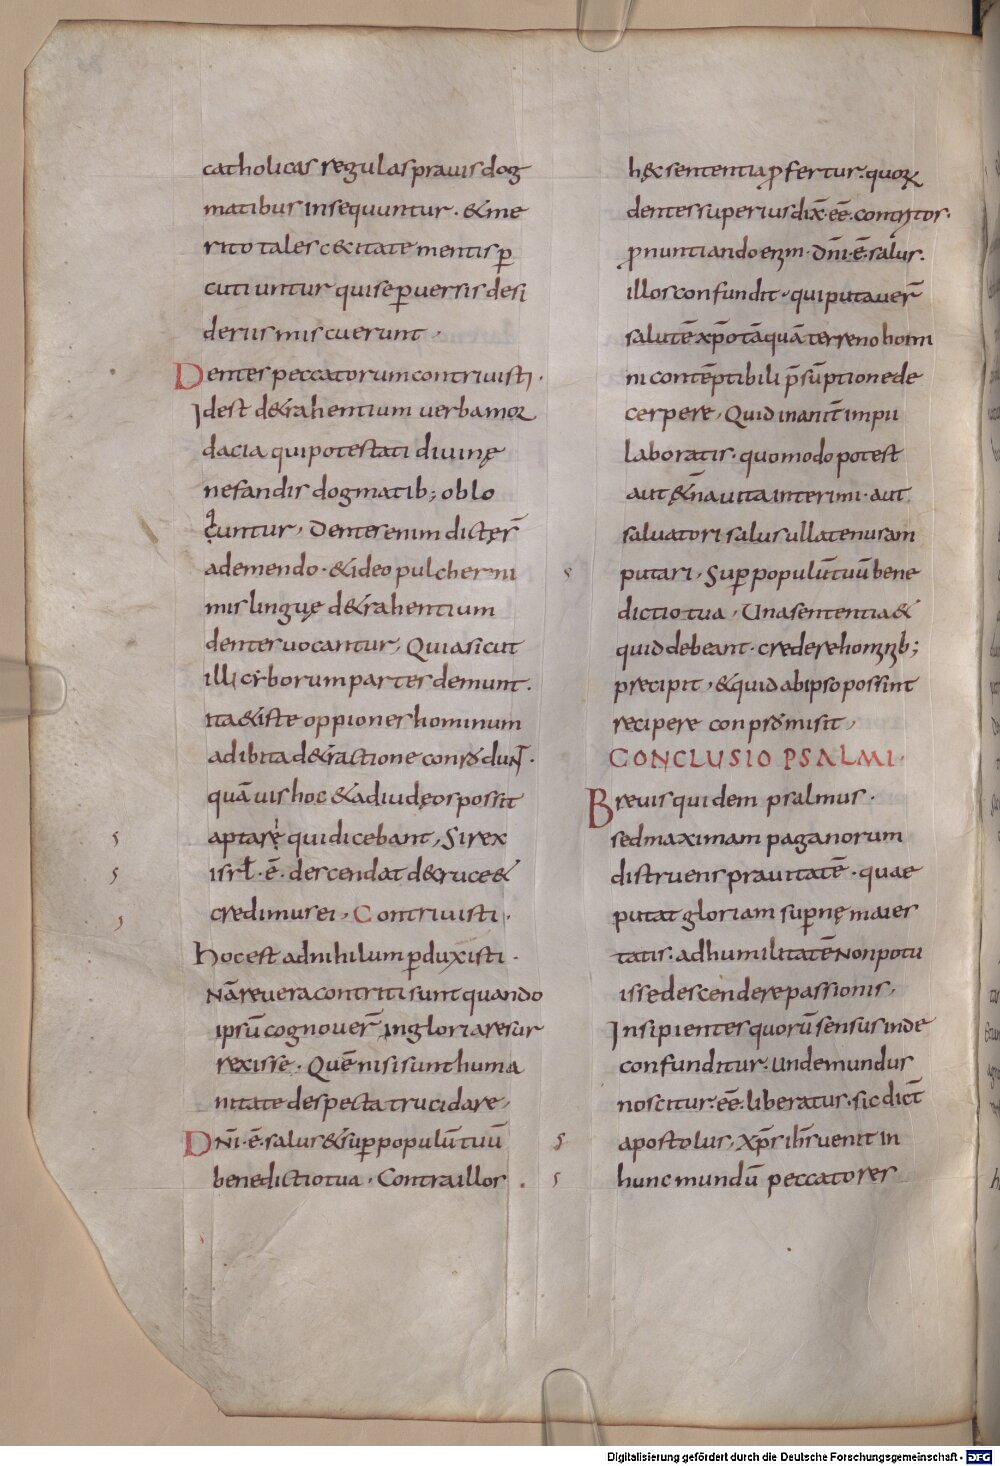 catholicas regulas prauis dog
matibus insequuntur · & me
rito tales c&citate mentis ꝑ
cutiuntur qui se ꝑuersis desi
deriis miscuerunt ·
Dentes peccatorum contriuisti ·
Idest d&rahentium uerba mor
dacia qui potestati diuinę
nefandis dogmatib; oblo
cuntur, Dentes enim dict er̄
a demendo · & ideo pulcherri
mis linguę d&rahentium
dentes uocantur, Qui a sicut
illi ciborum partes demunt ·
ita & iste oppiones hominum
adibita d&ractione conrodunt ·
quāuis hoc & ad iudęos possit
aptare qui dicebant, Si rex
isrł · ē · descendat de cruce &
credimus ei, Contriuisti ·
hoc est ad nihilum ꝑduxisti ·
Nā reuera contriti sunt quando
ipsū cognouer̄ in gloria resur
rexisse · Quē nisi sunt huma
nitate despecta trucidare,
Dn̄i · ē · salus & suꝑ populū tuū
benedictio tua · Contra illos
h&c sententia ꝓfertur · quoꝝ
dentes superius dix̄ · eē · contritos ·
ꝓnuntiando enim · Dn̄i · ē · salus ·
illos confundit · qui putauer̄
salutē xp̄o tāquā terreno homi
ni contēptibili p̄sūptione de
cerpere, Quid inanit̄ impii
laboratis · quomodo potest
aut &̄na uita interimi · aut
saluatori salus ullatenus am
putari, Suꝑ populū tuū bene
dictio tua, Una sententia &
quid debeant · credere hominib;
precipit, & quid ab ipso possint
recipere conpromisit,
CONCLUSIO PSALMI ·
Breuis quidem psalmus ·
sed maximam paganorum
distruens prauitatē · quae
putat gloriam suꝑnę maies
tatis · ad humilitatē non potu
isse descendere passionis,
Insipientes quorū sensus inde
confunditur · unde mundus
noscitur · eē · liberatus · sic dict̄
apostolus, xp̄s ih̄s uenit in
hunc mundū peccatores
Digitalisierung gefördert durch die Deutsche Forschungsgemeinschaft - DFG